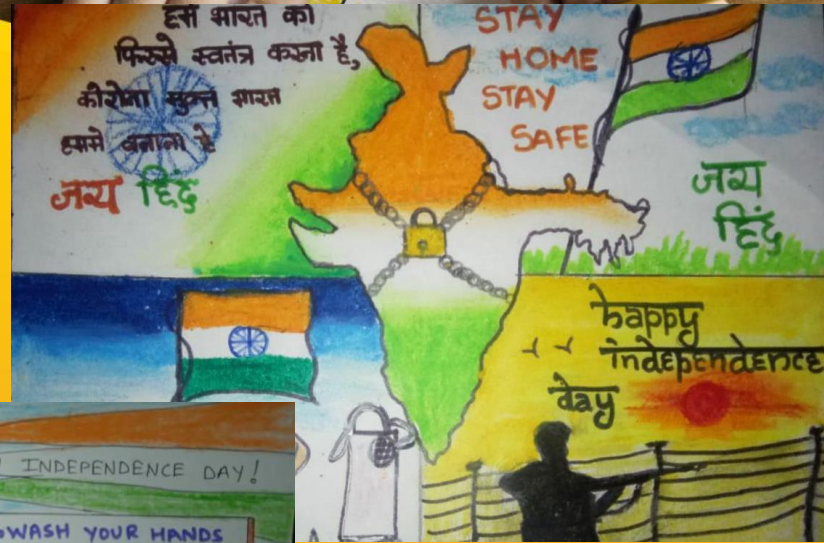 भारत को
फिरसे स्वतंत्र करना है,
कोरोना मुक्त भारत
बनाना है
जय हिंद
STAY
HOME
STAY
SAFE
जय
हिंद
happy
independence
day
INDEPENDENCE DAY!
WASH YOUR HANDS